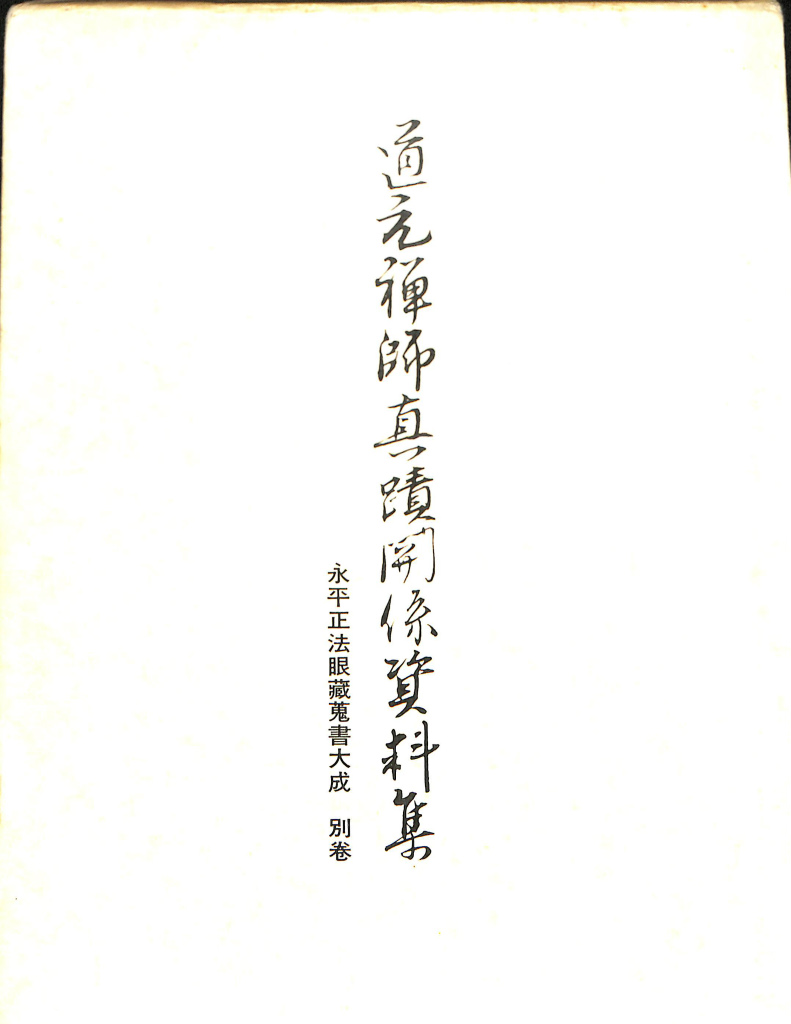 道元禅師真蹟関係資料集
永平正法眼藏蒐書大成　別卷